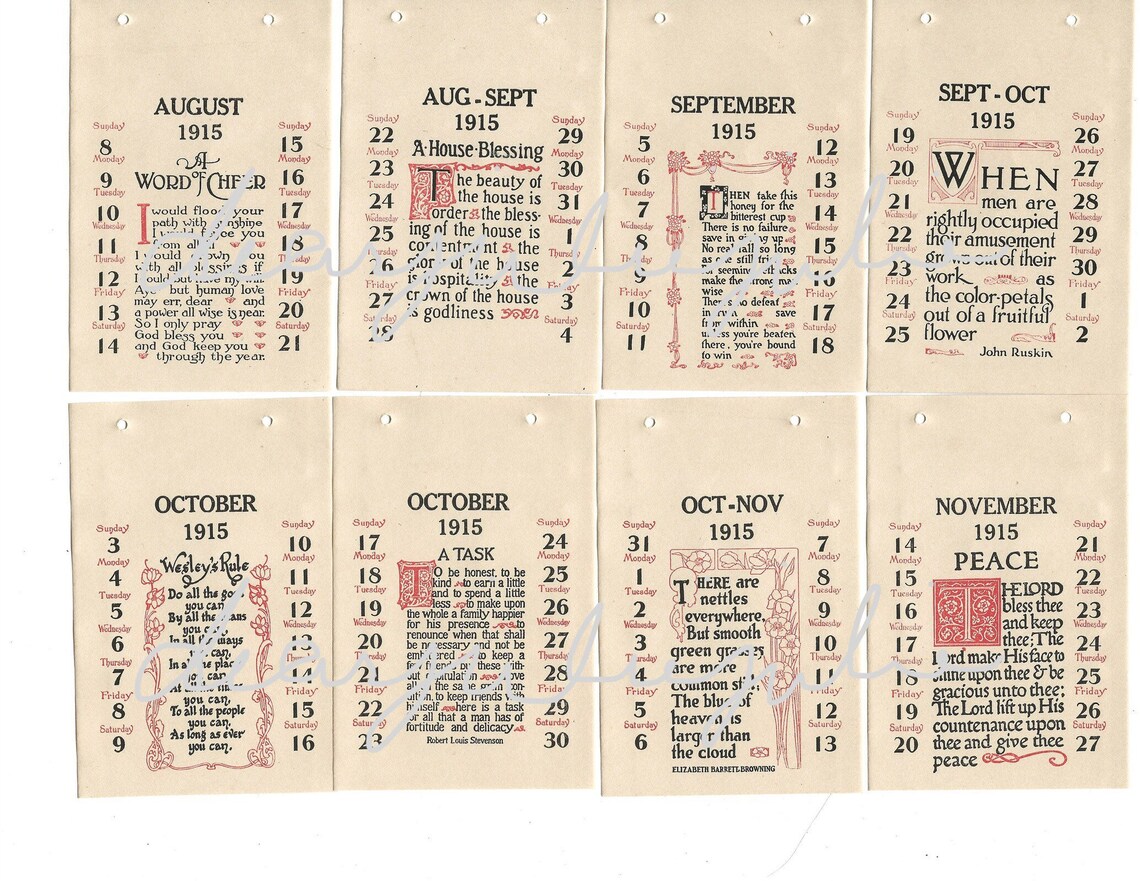 AUGUST
1915
Sunday
8
Monday
9
Tuesday
10
Wednesday
11
Thursday
12
Friday
13
Saturday
14
A
WORD OF CHEER
I would flood your
path with sunshine
I would fence you
from all ill
I would crown you
with all blessings if
I could but have my will
Aye but human love
may err, dear and
a power all wise is near.
So I only pray
God bless you
and God keep you
through the year.
Sunday
15
Monday
16
Tuesday
17
Wednesday
18
Thursday
19
Friday
20
Saturday
21
AUG-SEPT
1915
Sunday
22
Monday
23
Tuesday
24
Wednesday
25
Thursday
26
Friday
27
Saturday
28
A·House·Blessing
The beauty of
the house is
order the bless-
ing of the house is
contentment the
glory of the house
is hospitality the
crown of the house
is godliness
Sunday
29
Monday
30
Tuesday
31
Wednesday
1
Thursday
2
Friday
3
Saturday
4
SEPTEMBER
1915
Sunday
5
Monday
6
Tuesday
7
Wednesday
8
Thursday
9
Friday
10
Saturday
11
THEN take this
honey for the
bitterest cup
There is no failure
save in giving up
No real fall so long
as one still tries
For seeming setbacks
make the strong man
wise
There's no defeat
in truth save
from within
unless you're beaten
there, you're bound
to win
Sunday
12
Monday
13
Tuesday
14
Wednesday
15
Thursday
16
Friday
17
Saturday
18
SEPT-OCT
1915
Sunday
19
Monday
20
Tuesday
21
Wednesday
22
Thursday
23
Friday
24
Saturday
25
WHEN
men are
rightly occupied
their amusement
grows out of their
work as
the color-petals
out of a fruitful
flower
John Ruskin
Sunday
26
Monday
27
Tuesday
28
Wednesday
29
Thursday
30
Friday
1
Saturday
2
OCTOBER
1915
Sunday
3
Monday
4
Tuesday
5
Wednesday
6
Thursday
7
Friday
8
Saturday
9
Wesley's Rule
Do all the good
you can,
By all the means
you can,
In all the ways
you can,
In all the places
you can,
At all the times
you can,
To all the people
you can,
As long as ever
you can.
Sunday
10
Monday
11
Tuesday
12
Wednesday
13
Thursday
14
Friday
15
Saturday
16
OCTOBER
1915
Sunday
17
Monday
18
Tuesday
19
Wednesday
20
Thursday
21
Friday
22
Saturday
23
A TASK
TO be honest, to be
kind to earn a little
and to spend a little
less to make upon
the whole a family happier
for his presence to
renounce when that shall
be necessary and not be
embittered to keep a
few friends but these with-
out capitulation above
all on the same grim con-
dition to keep friends with
himself here is a task
for all that a man has of
fortitude and delicacy
Robert Louis Stevenson
Sunday
24
Monday
25
Tuesday
26
Wednesday
27
Thursday
28
Friday
29
Saturday
30
OCT-NOV
1915
Sunday
31
Monday
1
Tuesday
2
Wednesday
3
Thursday
4
Friday
5
Saturday
6
THERE are
nettles
everywhere,
But smooth
green grasses
are more
common still;
The blue of
heaven is
larger than
the cloud
ELIZABETH BARRETT-BROWNING
Sunday
7
Monday
8
Tuesday
9
Wednesday
10
Thursday
11
Friday
12
Saturday
13
NOVEMBER
1915
Sunday
14
Monday
15
Tuesday
16
Wednesday
17
Thursday
18
Friday
19
Saturday
20
PEACE
THE LORD
bless thee
and keep
thee; The
Lord make His face to
shine upon thee & be
gracious unto thee;
The Lord lift up His
countenance upon
thee and give thee
peace
Sunday
21
Monday
22
Tuesday
23
Wednesday
24
Thursday
25
Friday
26
Saturday
27